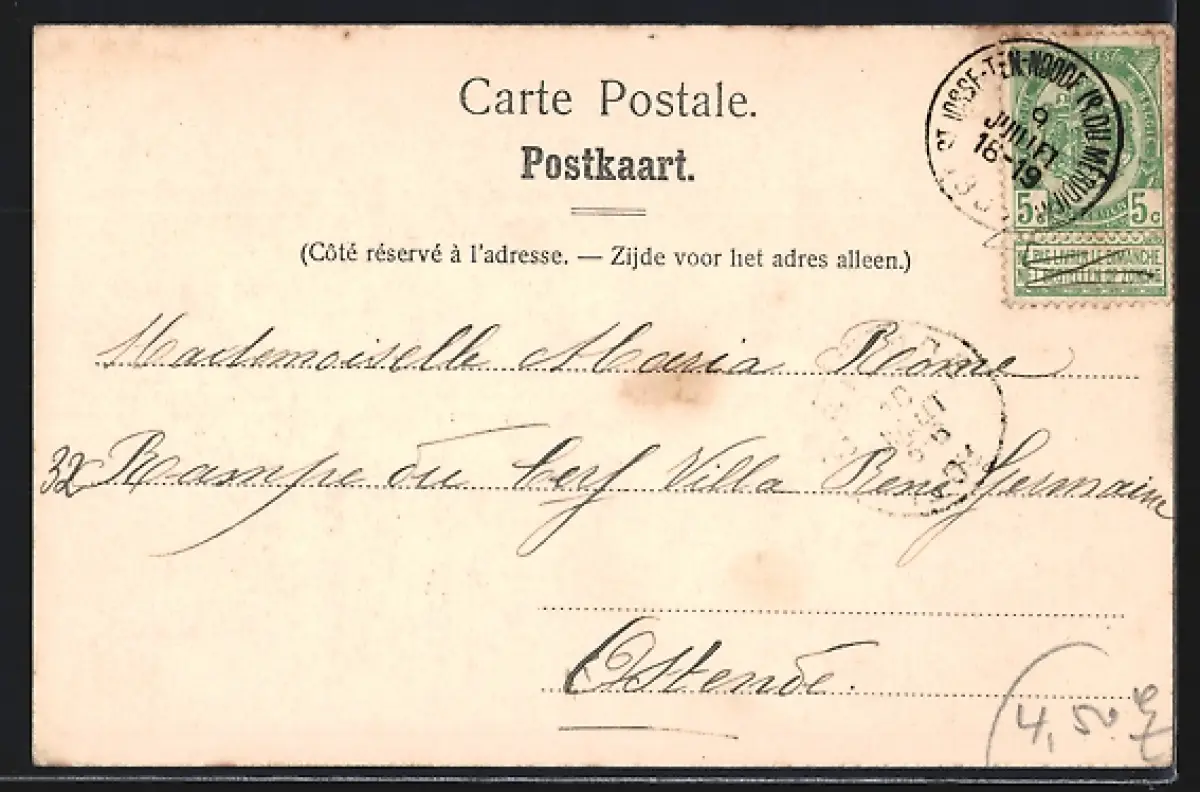 Carte Postale.
Postkaart.
(Côté réservé à l'adresse. — Zijde voor het adres alleen.)
ST JOSSE-TEN-NOODE (R. DU MÉRIDIEN)
9
JUILLET
16-19
5 5c
NE PAS LIVRER LE DIMANCHE
NIET BESTELLEN OP ZONDAG
Mademoiselle Maria Rome
32 Rampe du Cerf Villa René Germaine
10
Ostende.
4,50